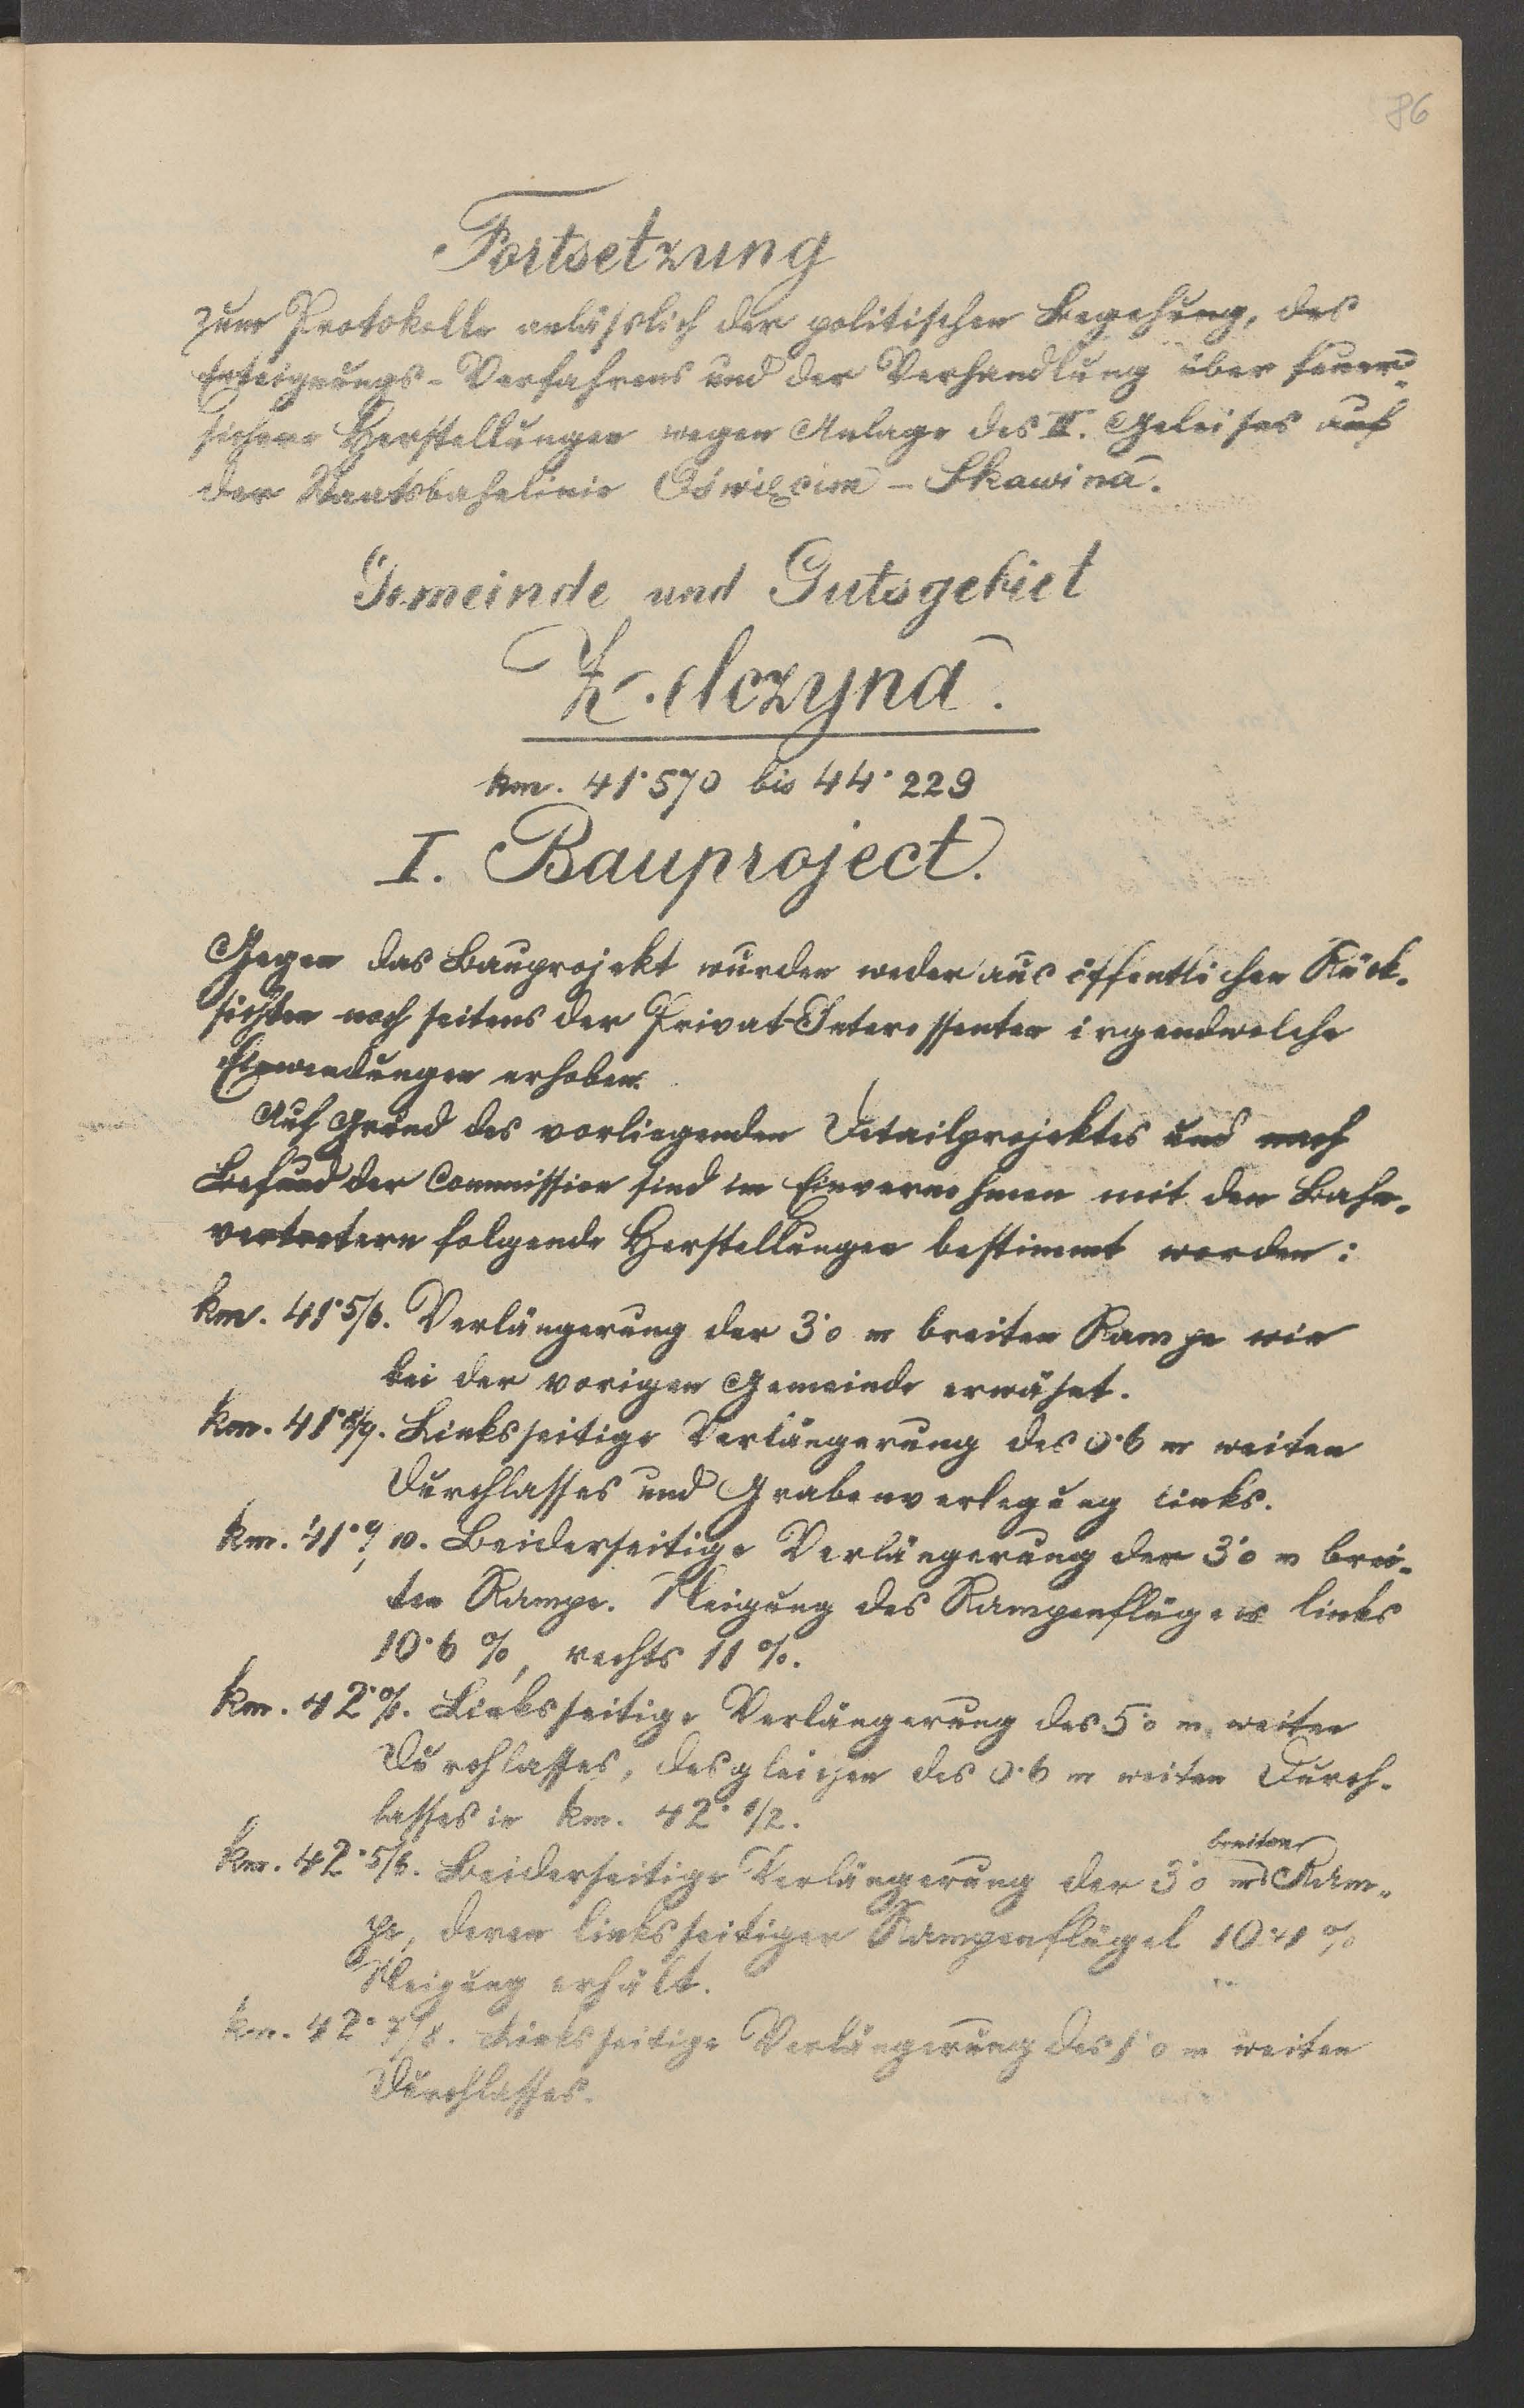 86
Fortsetzung
zum Protokolle anlässlich der politischen Begehung, des
Enteignungs-Verfahrens und der Verhandlung über feuer-
sichere Herstellungen wegen Anlage des II. Geleises auf
der Staatsbahnlinie Oświęcim - Skawina.
Gemeinde und Gutsgebiet
K. elczyna.
km. 41·570 bis 44·229
I. Bauproject.
Gegen das Bauprojekt wurden weder aus öffentlichen Rück-
sichten noch seitens der Privat-Interessenten irgendwelche
Einwendungen erhoben.
Auf Grund des vorliegenden Detailprojektes und nach
Befund der Commission sind im Einvernehmen mit den Bahn-
vertretern folgende Herstellungen bestimmt worden:
km. 41·5/6. Verlängerung der 3·0 m breiten Rampe wie
bei der vorigen Gemeinde erwähnt.
km. 41·8/9. Linksseitige Verlängerung des 0·6 m weiten
Durchlasses und Grabenverlegung links.
km. 41·9/10. Beiderseitige Verlängerung der 3·0 m brei-
ten Rampe. Neigung des Rampenflügels links
10·6 %, rechts 11 %.
km. 42·0/1. Linksseitige Verlängerung des 5·0 m weiten
Durchlasses, desgleichen des 0·6 m weiten Durch-
lasses in km. 42·1/2.
km. 42·5/6. Beiderseitige Verlängerung der 3·0 m breiten Ram-
pe, deren linksseitiger Rampenflügel 10·41 %
Neigung erhält.
km. 42·7/8. Linksseitige Verlängerung des 1·0 m weiten
Durchlasses.